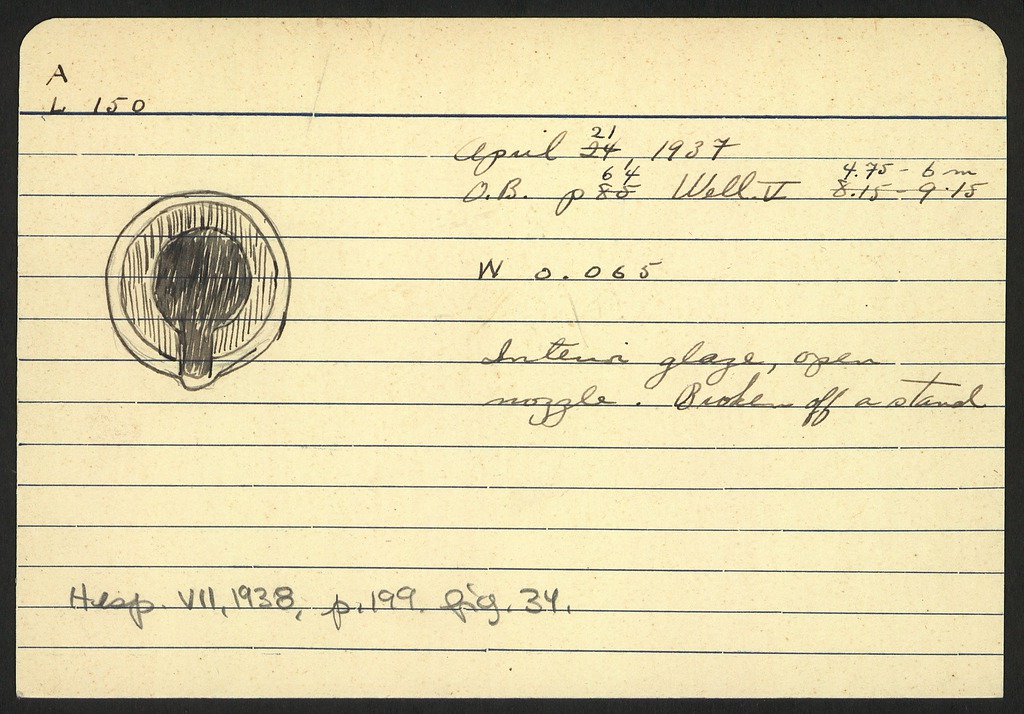 A
L 150
21
April 24, 1937
64 4.75 - 6 m
O.B. p 85 Well V 8.15 - 9.15
W 0.065
Interior glaze, open
nozzle. Broken off a stand
Hesp. VII, 1938, p. 199. fig. 34.